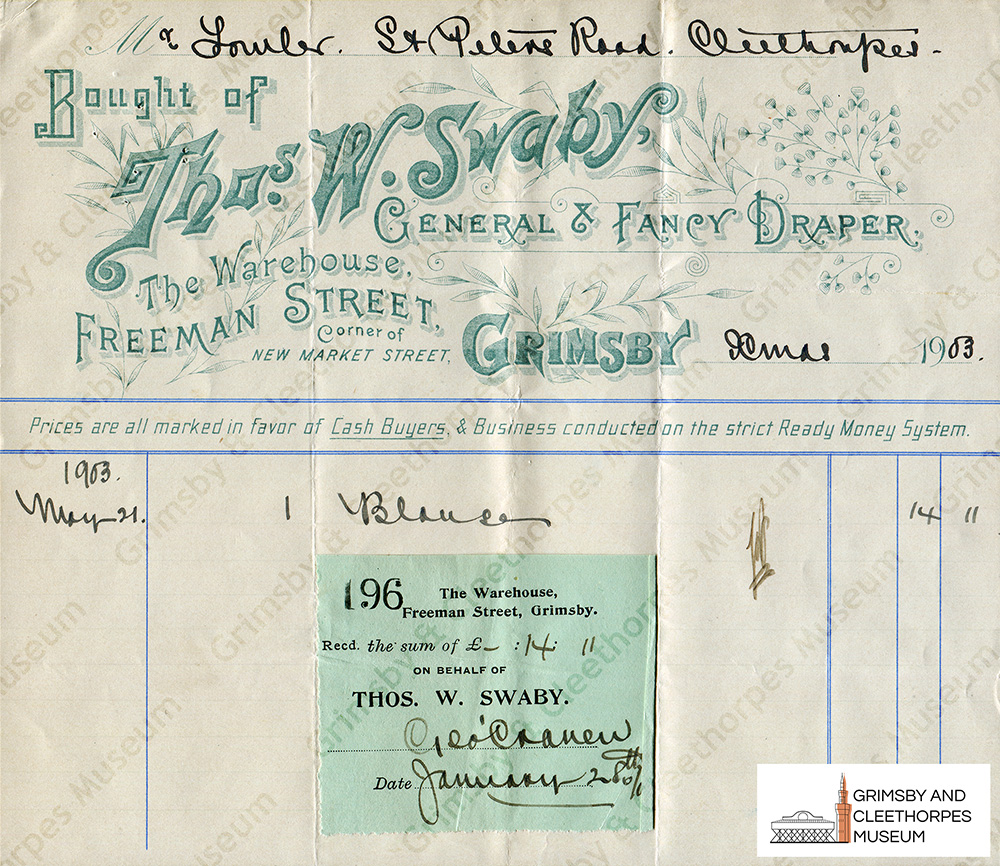 Mr Fowler. St Peters Road. Cleethorpes.
Bought of
Thos. W. Swaby,
GENERAL & FANCY DRAPER.
The Warehouse,
FREEMAN STREET,
Corner of
NEW MARKET STREET,
GRIMSBY Xmas 1903.
Prices are all marked in favor of Cash Buyers, & Business conducted on the strict Ready Money System.
1903.
May 21. 1 Blouse 14 11
196
The Warehouse,
Freeman Street, Grimsby.
Recd. the sum of £- : 14 : 11
ON BEHALF OF
THOS. W. SWABY.
Geo
Date January 28th
GRIMSBY AND
CLEETHORPES
MUSEUM